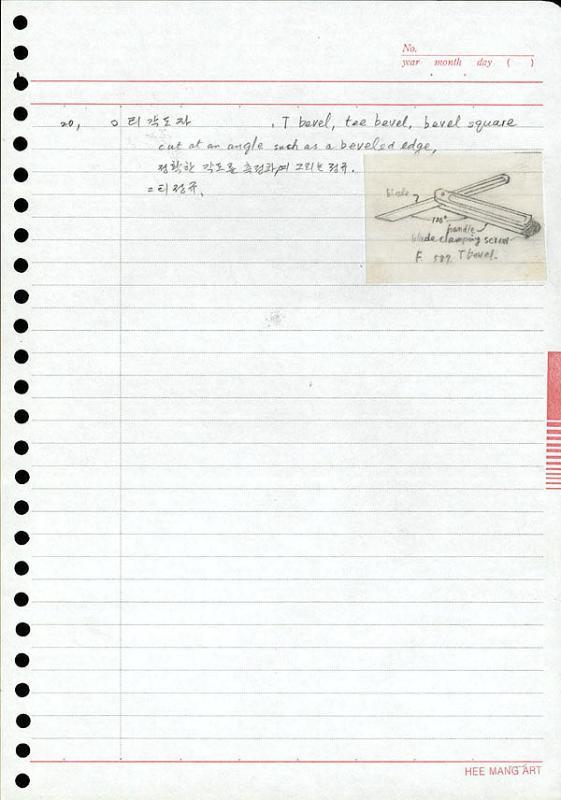 No.
year month day ( )
20, ○ 티 각도자 , T bevel, tee bevel, bevel square
cut at an angle such as a beveled edge,
정확한 각도를 측정하여 그리는 정규.
= 티 정규,
blade
120°
handle
blade clamping screw
F. 589. T bevel.
HEE MANG ART